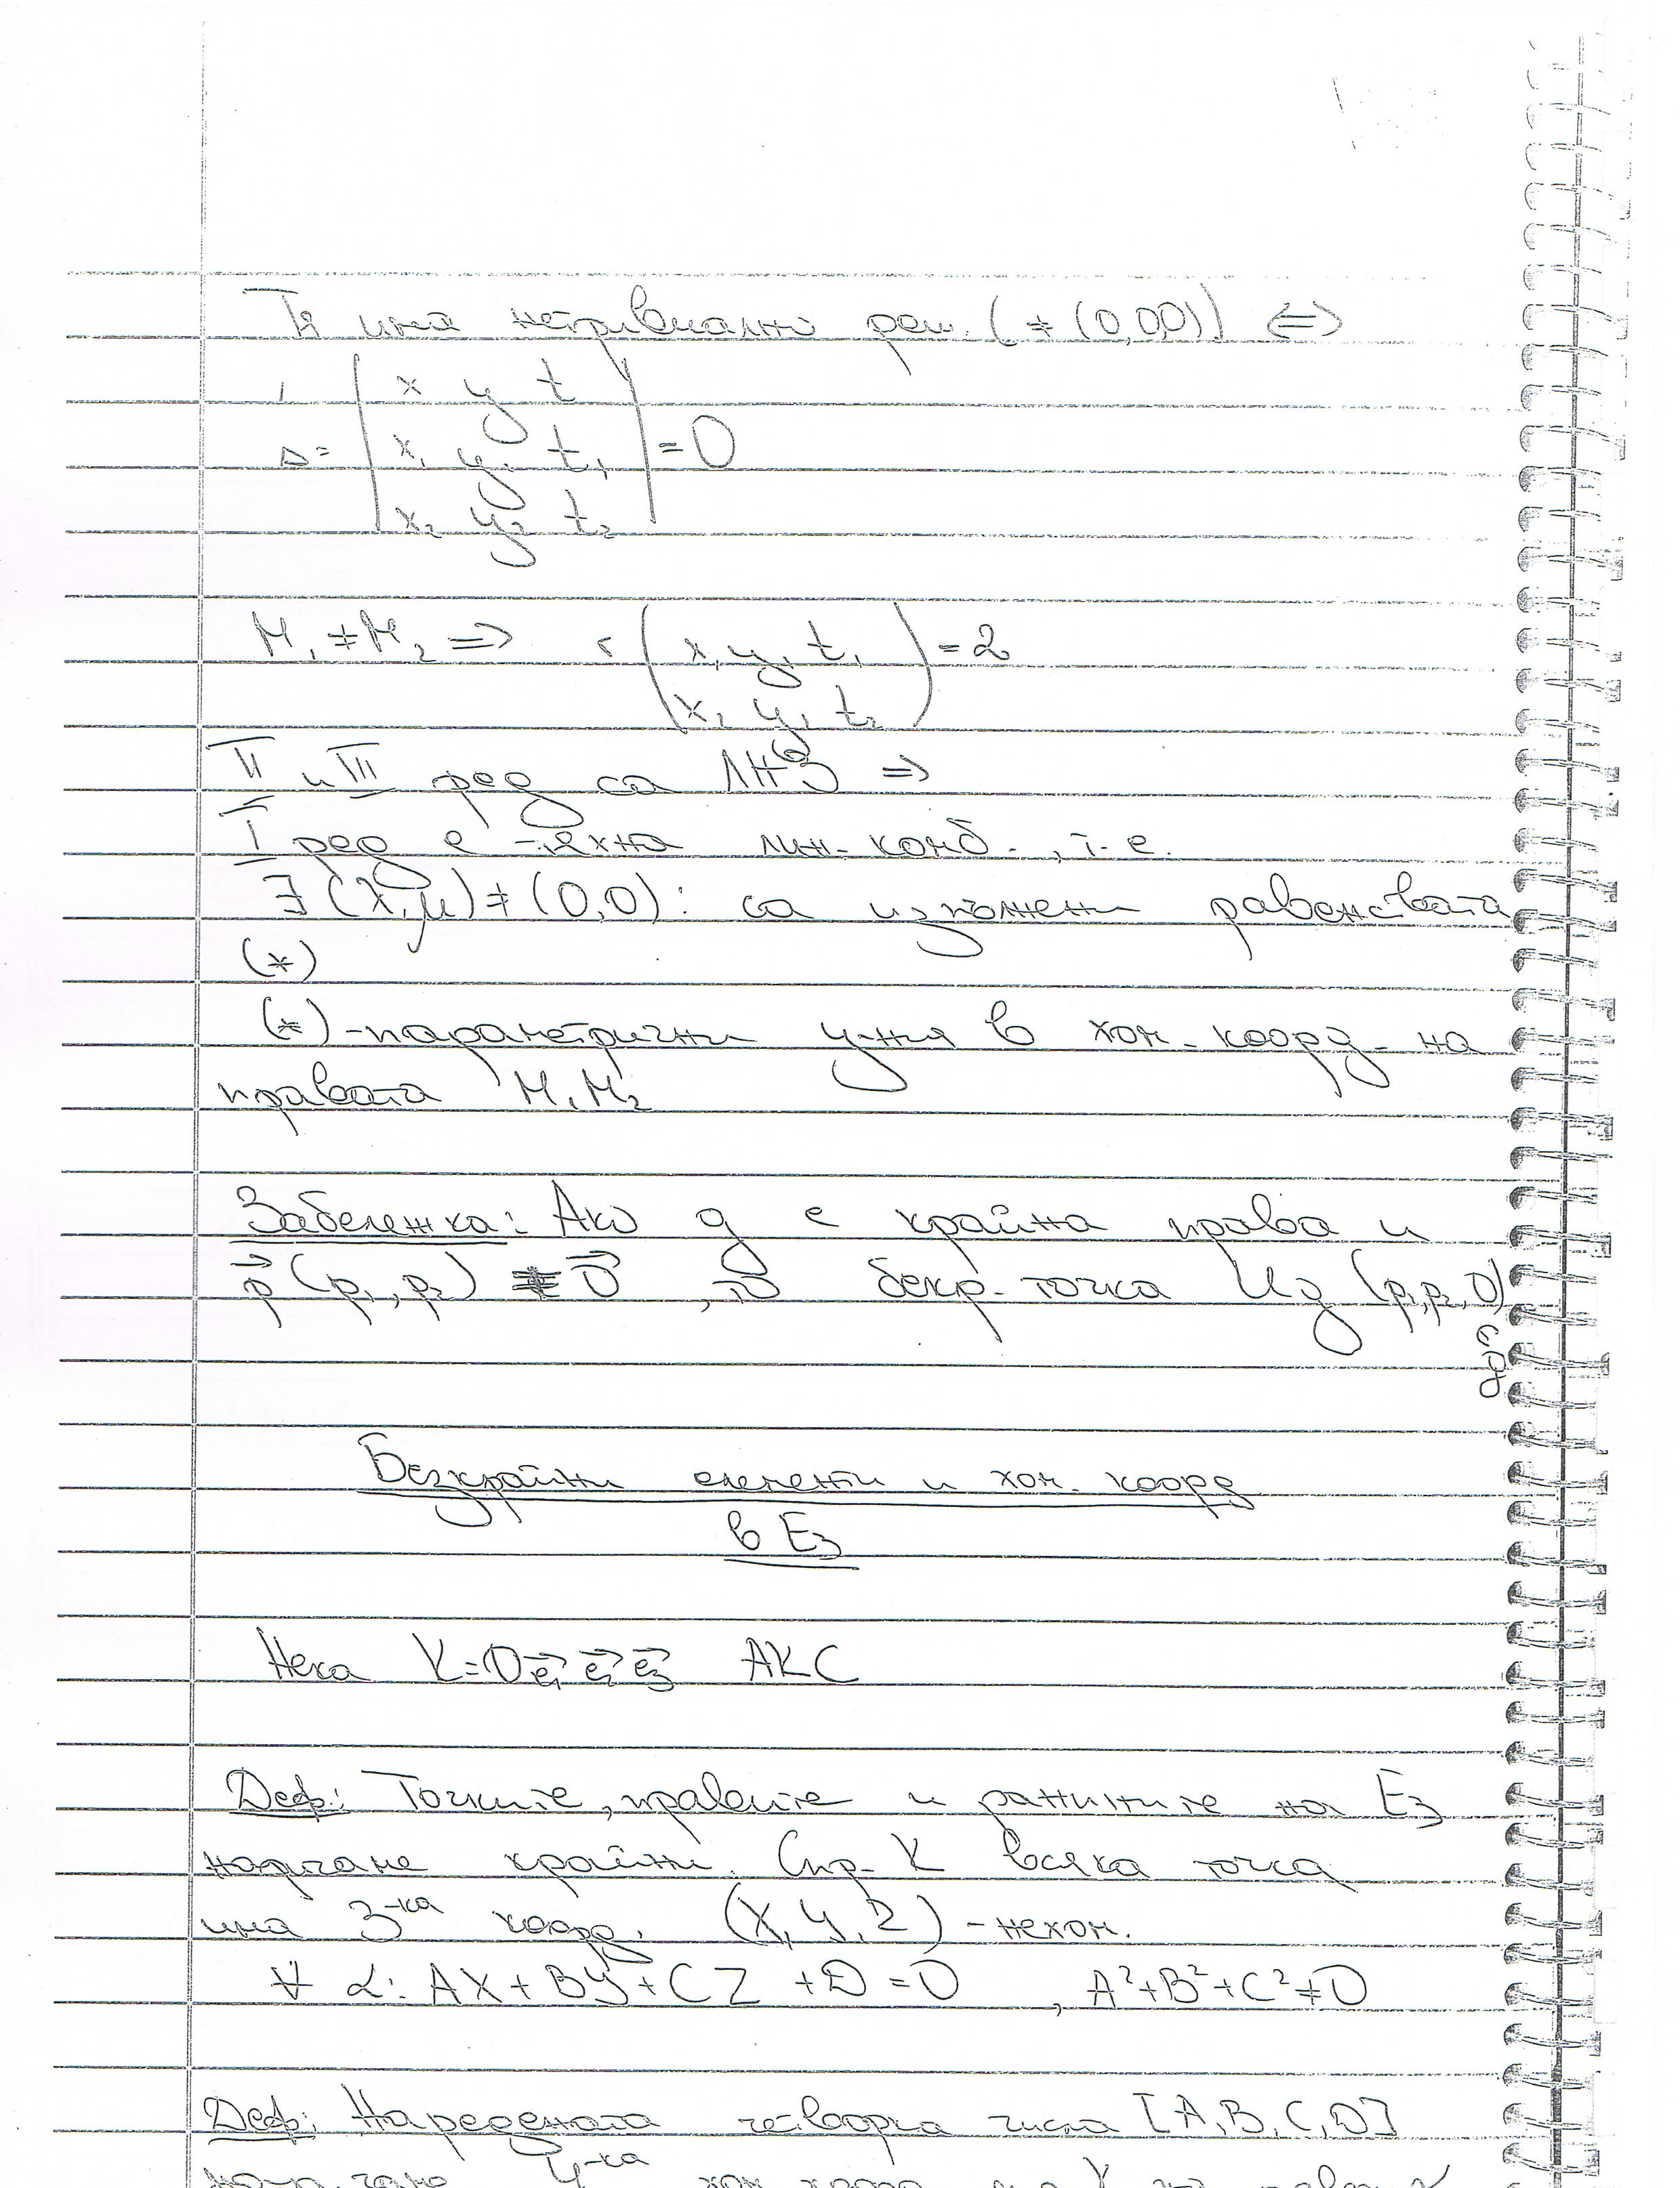 Тя има нетривиално реш. (≠ (0,0,0)) <=>
x y t
Δ = | x₁ y₁ t₁ | = 0
x₂ y₂ t₂
M₁ ≠ M₂ => r ( x₁ y₁ t₁ ) = 2
x₂ y₂ t₂
II и III ред са ЛНЗ =>
I ред е тяхна лин. комб., т.е.
∃ (λ, μ) ≠ (0,0): са изпълнени равенствата
(*)
(*) - параметрични у-ния в хом. коорд. на
правата M₁M₂
Забележка: Ако g е крайна права и
p⃗ (p₁, p₂) ≠ 0⃗, то безкр. точка U_g (p₁, p₂, 0)
Безкрайни елементи и хом. коорд
в E₃
Нека K=Oe₁⃗ e₂⃗ e₃⃗ АКС
Деф: Точките, правите и равнините на E₃
наричаме крайни. Спр. K всяка точка
има 3-ка коорд. (X, Y, Z) - нехом.
∀ α: AX + BY + CZ + D = 0 , A² + B² + C² ≠ 0
Деф: Наредената четворка числа [A, B, C, D]
наричаме 4-ка хом. коорд.